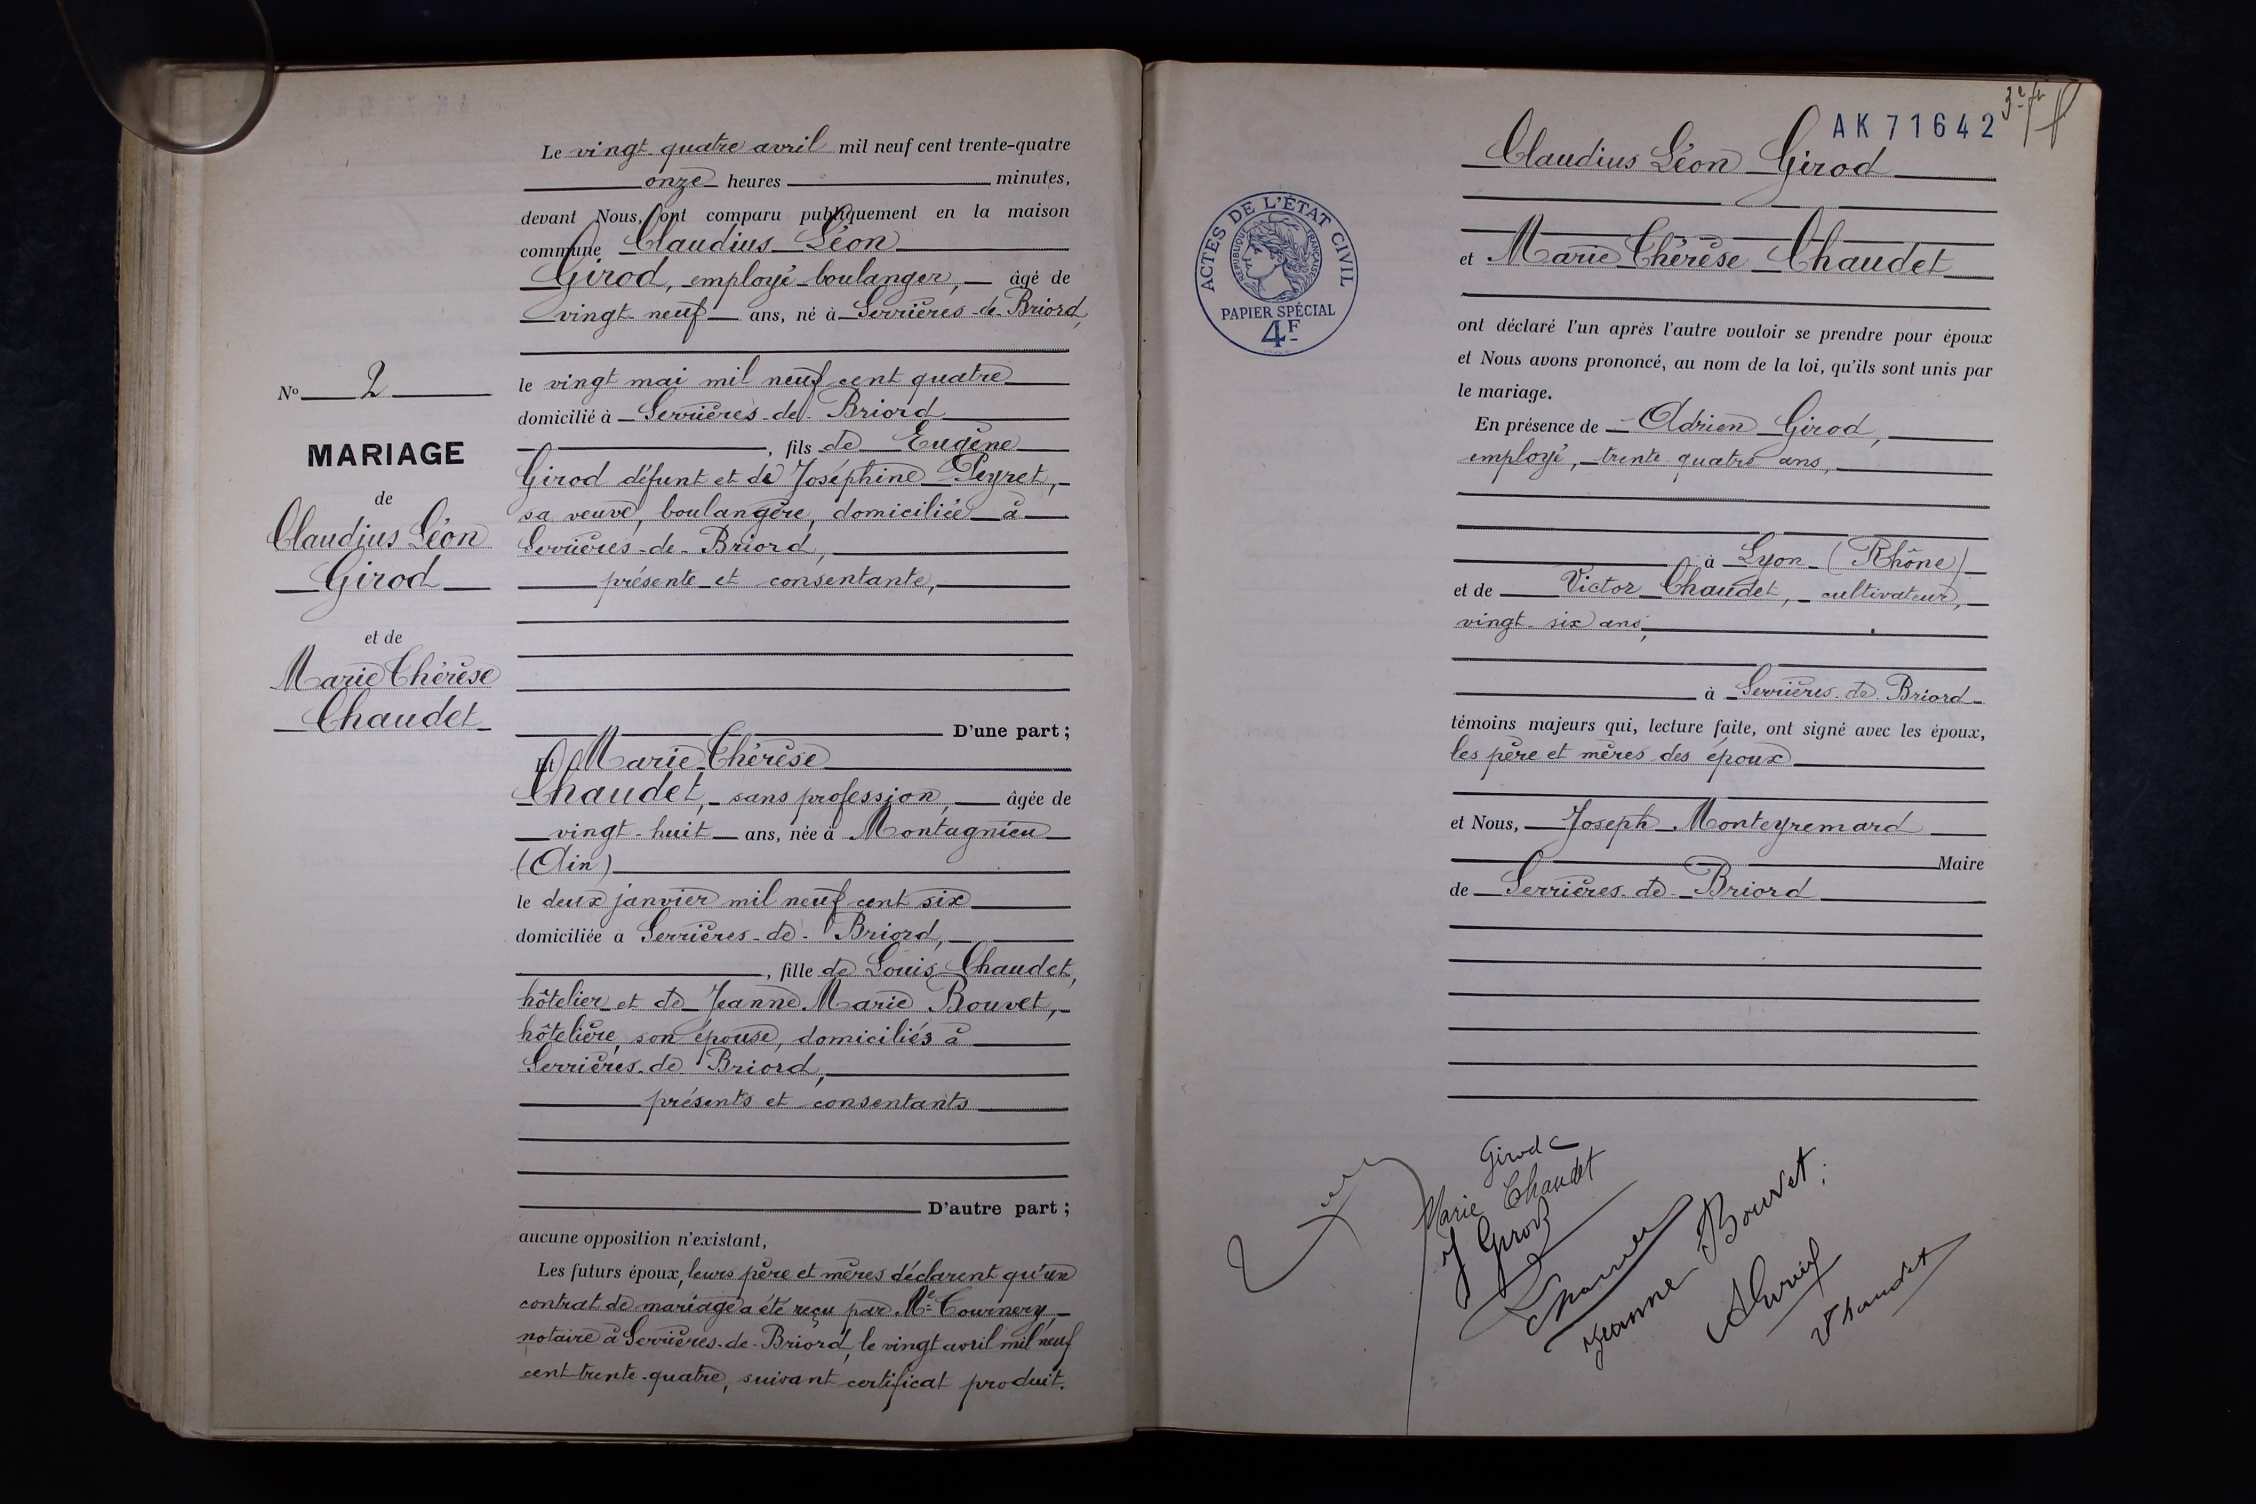 Le vingt quatre avril mil neuf cent trente-quatre
onze heures minutes,
devant Nous, ont comparu publiquement en la maison
commune Claudius Léon
Girod, employé boulanger, âgé de
vingt neuf ans, né à Serrières-de-Briord,
le vingt mai mil neuf cent quatre
domicilié à Serrières-de-Briord
, fils de Eugène
Girod défunt et de Joséphine Peyret,
sa veuve, boulangère, domiciliée à
Serrières-de-Briord,
présente et consentante,
D'une part ;
Et Marie Thérèse
Chaudet, sans profession, âgée de
vingt-huit ans, née à Montagnieu
(Ain)
le deux janvier mil neuf cent six
domiciliée a Serrières-de-Briord,
, fille de Louis Chaudet,
hôtelier et de Jeanne Marie Bouvet,
hôtelière, son épouse, domiciliés à
Serrières-de-Briord,
présents et consentants
D'autre part ;
aucune opposition n'existant,
Les futurs époux, leurs père et mères déclarent qu'un
contrat de mariage a été reçu par Me Tournery,
notaire à Serrières-de-Briord, le vingt avril mil neuf
cent trente-quatre, suivant certificat produit.
No 2
MARIAGE
de
Claudius Léon
Girod
et de
Marie Thérèse
Chaudet
AK71642
Claudius Léon Girod
et Marie Thérèse Chaudet
ACTES DE L'ÉTAT CIVIL
RÉPUBLIQUE FRANÇAISE
PAPIER SPÉCIAL
4F
ont déclaré l'un après l'autre vouloir se prendre pour époux
et Nous avons prononcé, au nom de la loi, qu'ils sont unis par
le mariage.
En présence de Adrien Girod,
employé, trente quatre ans,
à Lyon (Rhône)
et de Victor Chaudet, cultivateur,
vingt-six ans,
à Serrières-de-Briord
témoins majeurs qui, lecture faite, ont signé avec les époux,
les père et mères des époux
et Nous, Joseph Monteyremard
Maire
de Serrières-de-Briord
Girod C
Marie Chaudet
J Girod
Jeanne Bouvet
V Chaudet